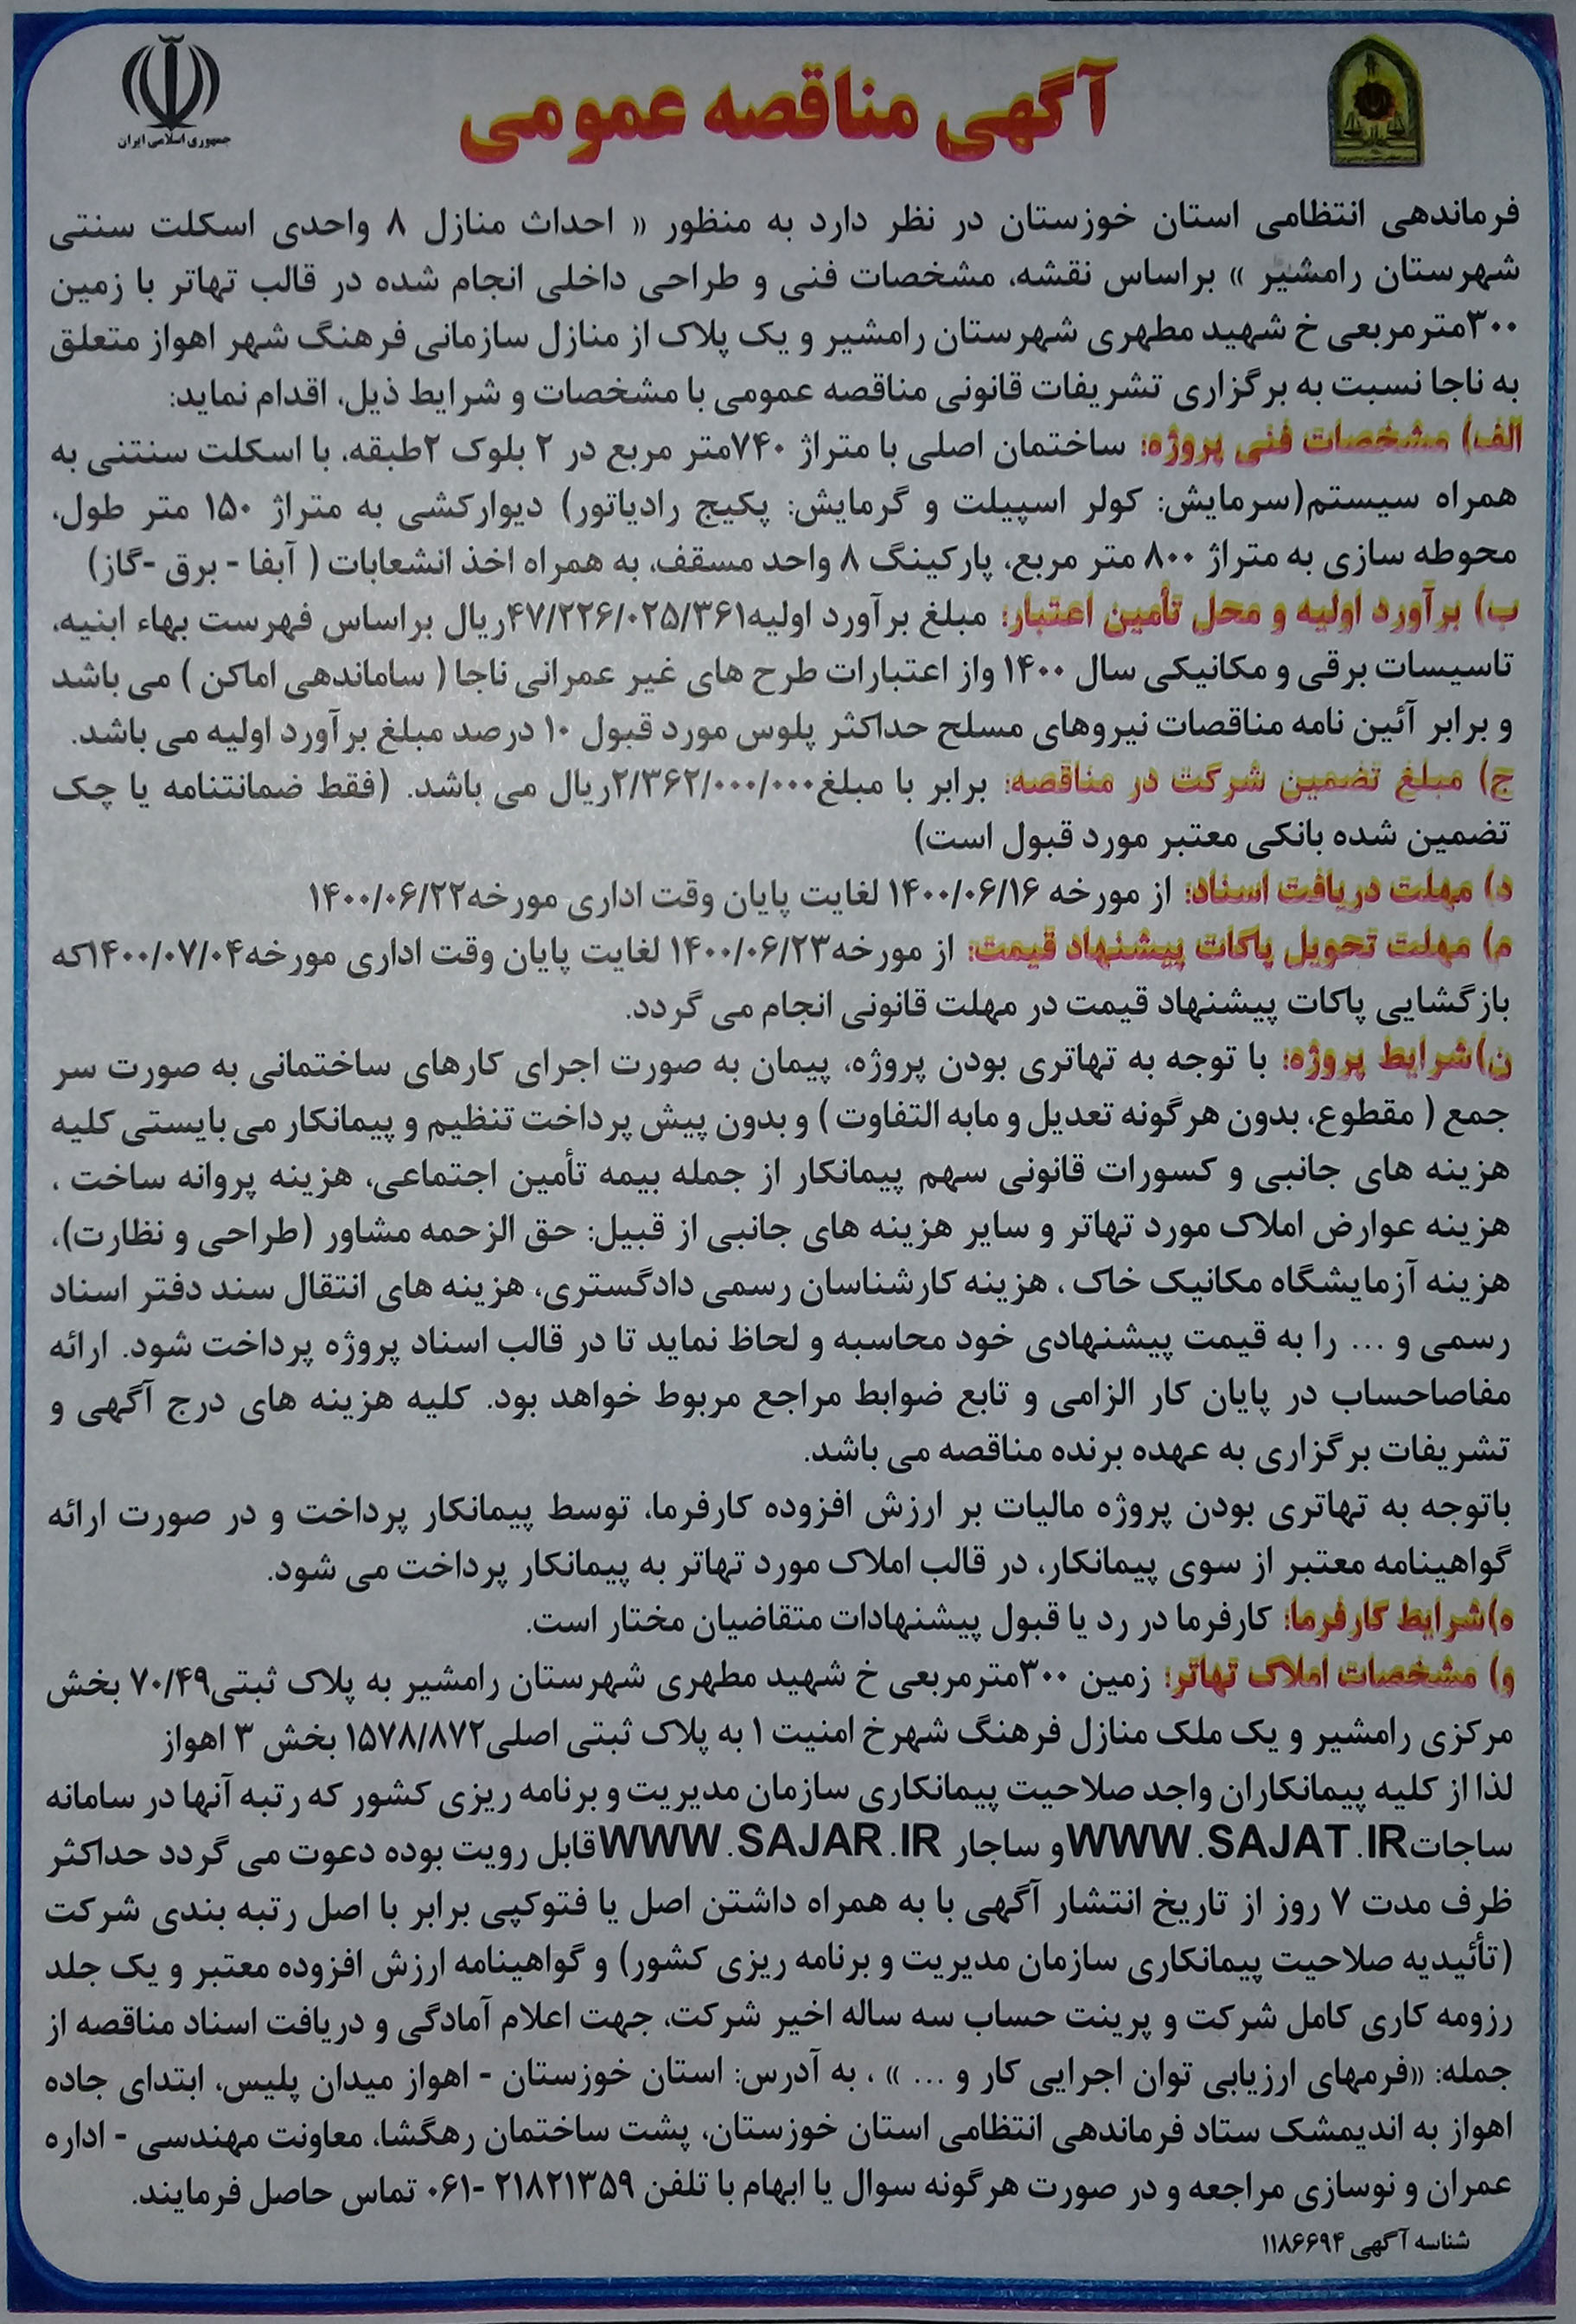 جمهوری اسلامی ایران
آگهی مناقصه عمومی
فرماندهی انتظامی استان خوزستان در نظر دارد به منظور « احداث منازل ۸ واحدی اسکلت سنتی
شهرستان رامشیر » براساس نقشه، مشخصات فنی و طراحی داخلی انجام شده در قالب تهاتر با زمین
۳۰۰مترمربعی خ شهید مطهری شهرستان رامشیر و یک پلاک از منازل سازمانی فرهنگ شهر اهواز متعلق
به ناجا نسبت به برگزاری تشریفات قانونی مناقصه عمومی با مشخصات و شرایط ذیل، اقدام نماید:
الف) مشخصات فنی پروژه: ساختمان اصلی با متراژ ۷۴۰متر مربع در ۲ بلوک ۲طبقه، با اسکلت سنتنی به
همراه سیستم(سرمایش: کولر اسپیلت و گرمایش: پکیج رادیاتور) دیوارکشی به متراژ ۱۵۰ متر طول،
محوطه سازی به متراژ ۸۰۰ متر مربع، پارکینگ ۸ واحد مسقف، به همراه اخذ انشعابات ( آبفا - برق -گاز)
ب) برآورد اولیه و محل تأمین اعتبار: مبلغ برآورد اولیه۴۷/۲۲۶/۰۲۵/۳۶۱ریال براساس فهرست بهاء ابنیه،
تاسیسات برقی و مکانیکی سال ۱۴۰۰ واز اعتبارات طرح های غیر عمرانی ناجا ( ساماندهی اماکن ) می باشد
و برابر آئین نامه مناقصات نیروهای مسلح حداکثر پلوس مورد قبول ۱۰ درصد مبلغ برآورد اولیه می باشد.
ج) مبلغ تضمین شرکت در مناقصه: برابر با مبلغ۲/۳۶۲/۰۰۰/۰۰۰ریال می باشد. (فقط ضمانتنامه یا چک
تضمین شده بانکی معتبر مورد قبول است)
د) مهلت دریافت اسناد: از مورخه ۱۴۰۰/۰۶/۱۶ لغایت پایان وقت اداری مورخه۱۴۰۰/۰۶/۲۲
م) مهلت تحویل پاکات پیشنهاد قیمت: از مورخه۱۴۰۰/۰۶/۲۳ لغایت پایان وقت اداری مورخه۱۴۰۰/۰۷/۰۴که
بازگشایی پاکات پیشنهاد قیمت در مهلت قانونی انجام می گردد.
ن)شرایط پروژه: با توجه به تهاتری بودن پروژه، پیمان به صورت اجرای کارهای ساختمانی به صورت سر
جمع ( مقطوع، بدون هرگونه تعدیل و مابه التفاوت ) و بدون پیش پرداخت تنظیم و پیمانکار می بایستی کلیه
هزینه های جانبی و کسورات قانونی سهم پیمانکار از جمله بیمه تأمین اجتماعی، هزینه پروانه ساخت ،
هزینه عوارض املاک مورد تهاتر و سایر هزینه های جانبی از قبیل: حق الزحمه مشاور (طراحی و نظارت)،
هزینه آزمایشگاه مکانیک خاک ، هزینه کارشناسان رسمی دادگستری، هزینه های انتقال سند دفتر اسناد
رسمی و ... را به قیمت پیشنهادی خود محاسبه و لحاظ نماید تا در قالب اسناد پروژه پرداخت شود. ارائه
مفاصاحساب در پایان کار الزامی و تابع ضوابط مراجع مربوط خواهد بود. کلیه هزینه های درج آگهی و
تشریفات برگزاری به عهده برنده مناقصه می باشد.
باتوجه به تهاتری بودن پروژه مالیات بر ارزش افزوده کارفرما، توسط پیمانکار پرداخت و در صورت ارائه
گواهینامه معتبر از سوی پیمانکار، در قالب املاک مورد تهاتر به پیمانکار پرداخت می شود.
ه)شرایط کارفرما: کارفرما در رد یا قبول پیشنهادات متقاضیان مختار است.
و) مشخصات املاک تهاتر: زمین ۳۰۰مترمربعی خ شهید مطهری شهرستان رامشیر به پلاک ثبتی۷۰/۴۹ بخش
مرکزی رامشیر و یک ملک منازل فرهنگ شهرخ امنیت ۱ به پلاک ثبتی اصلی۱۵۷۸/۸۷۲ بخش ۳ اهواز
لذا از کلیه پیمانکاران واجد صلاحیت پیمانکاری سازمان مدیریت و برنامه ریزی کشور که رتبه آنها در سامانه
ساجاتWWW.SAJAT.IRو ساجار WWW.SAJAR.IRقابل رویت بوده دعوت می گردد حداکثر
ظرف مدت ۷ روز از تاریخ انتشار آگهی با به همراه داشتن اصل یا فتوکپی برابر با اصل رتبه بندی شرکت
(تأئیدیه صلاحیت پیمانکاری سازمان مدیریت و برنامه ریزی کشور) و گواهینامه ارزش افزوده معتبر و یک جلد
رزومه کاری کامل شرکت و پرینت حساب سه ساله اخیر شرکت، جهت اعلام آمادگی و دریافت اسناد مناقصه از
جمله: «فرمهای ارزیابی توان اجرایی کار و ... » ، به آدرس: استان خوزستان - اهواز میدان پلیس، ابتدای جاده
اهواز به اندیمشک ستاد فرماندهی انتظامی استان خوزستان، پشت ساختمان رهگشا، معاونت مهندسی - اداره
عمران و نوسازی مراجعه و در صورت هرگونه سوال یا ابهام با تلفن ۲۱۸۲۱۳۵۹ -۰۶۱ تماس حاصل فرمایند.
شناسه آگهی ۱۱۸۶۶۹۴